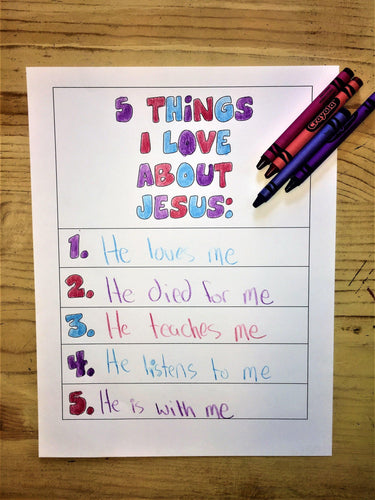 5 THINGS
I LOVE
ABOUT
JESUS:
1. He loves me
2. He died for me
3. He teaches me
4. He listens to me
5. He is with me
Crayola